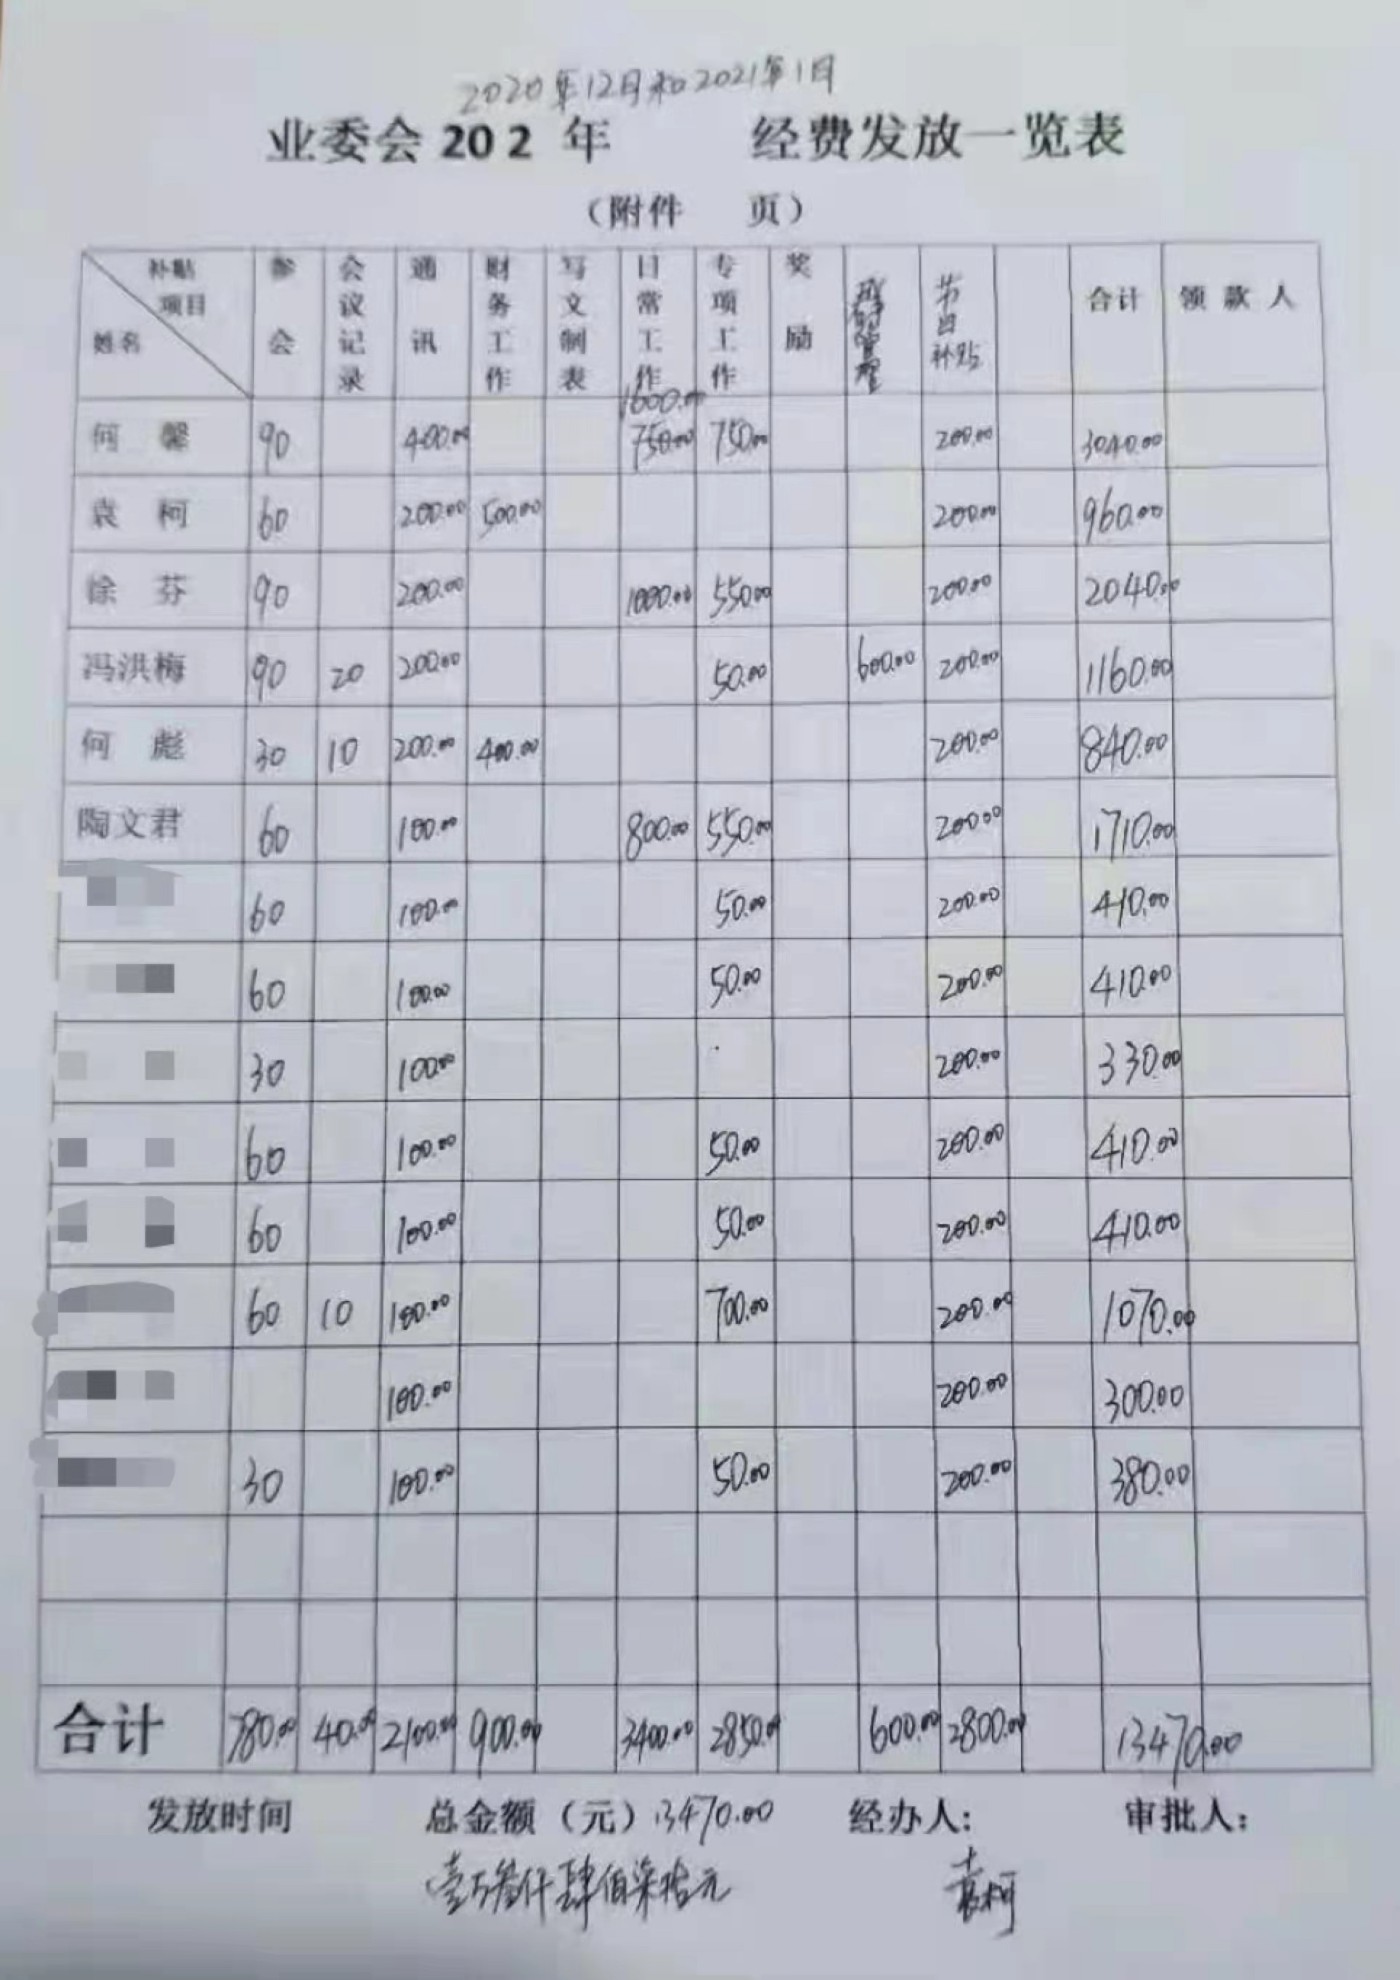 2020年12月和2021年1月
业委会 202 年 经费发放一览表
（附件 页）
补贴项目 姓名 参会 会议记录 通讯 财务工作 写文制表 日常工作 专项工作 奖励 管理 节日补贴 合计 领款人
何馨 90 400.00 1600.00 750.00 750.00 200.00 3040.00
袁柯 60 200.00 500.00 200.00 960.00
徐芬 90 200.00 1000.00 550.00 200.00 2040.00
冯洪梅 90 20 200.00 50.00 600.00 200.00 1160.00
何彪 30 10 200.00 400.00 200.00 840.00
陶文君 60 100.00 800.00 550.00 200.00 1710.00
60 100.00 50.00 200.00 410.00
60 100.00 50.00 200.00 410.00
30 100.00 200.00 330.00
60 100.00 50.00 200.00 410.00
60 100.00 50.00 200.00 410.00
60 10 100.00 700.00 200.00 1070.00
100.00 200.00 300.00
30 100.00 50.00 200.00 380.00
合计 780.00 40.00 2100.00 900.00 3400.00 2850.00 600.00 2800.00 13470.00
发放时间 总金额（元）13470.00 经办人： 审批人：
壹万叁仟肆佰柒拾元 袁柯